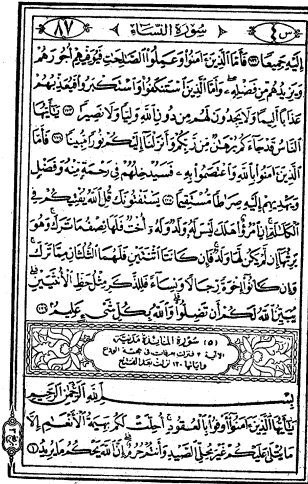 س ٤ سُورَةُ النِّسَاءِ ٨٧
إِلَيْهِ جَمِيعًا ١٧٢ فَأَمَّا الَّذِينَ ءَامَنُوا۟ وَعَمِلُوا۟ الصَّٰلِحَٰتِ فَيُوَفِّيهِمْ أُجُورَهُمْ
وَيَزِيدُهُم مِّن فَضْلِهِۦ وَأَمَّا الَّذِينَ اسْتَنكَفُوا۟ وَاسْتَكْبَرُوا۟ فَيُعَذِّبُهُمْ
عَذَابًا أَلِيمًا وَلَا يَجِدُونَ لَهُم مِّن دُونِ اللَّهِ وَلِيًّا وَلَا نَصِيرًا ١٧٣ يَٰٓأَيُّهَا
النَّاسُ قَدْ جَآءَكُم بُرْهَٰنٌ مِّن رَّبِّكُمْ وَأَنزَلْنَآ إِلَيْكُمْ نُورًا مُّبِينًا ١٧٤ فَأَمَّا
الَّذِينَ ءَامَنُوا۟ بِاللَّهِ وَاعْتَصَمُوا۟ بِهِۦ فَسَيُدْخِلُهُمْ فِى رَحْمَةٍ مِّنْهُ وَفَضْلٍ
وَيَهْدِيهِمْ إِلَيْهِ صِرَٰطًا مُّسْتَقِيمًا ١٧٥ يَسْتَفْتُونَكَ قُلِ اللَّهُ يُفْتِيكُمْ فِى
الْكَلَٰلَةِ إِنِ امْرُؤٌا۟ هَلَكَ لَيْسَ لَهُۥ وَلَدٌ وَلَهُۥٓ أُخْتٌ فَلَهَا نِصْفُ مَا تَرَكَ وَهُوَ
يَرِثُهَآ إِن لَّمْ يَكُن لَّهَا وَلَدٌ فَإِن كَانَتَا اثْنَتَيْنِ فَلَهُمَا الثُّلُثَانِ مِمَّا تَرَكَ
وَإِن كَانُوٓا۟ إِخْوَةً رِّجَالًا وَنِسَآءً فَلِلذَّكَرِ مِثْلُ حَظِّ الْأُنثَيَيْنِ
يُبَيِّنُ اللَّهُ لَكُمْ أَن تَضِلُّوا۟ وَاللَّهُ بِكُلِّ شَىْءٍ عَلِيمٌۢ ١٧٦
(٥) سُورَةُ الْمَائِدَةِ مَدَنِيَّة
الآية ٣ فنزلت بعرفات في حجة الوداع
وآياتها ١٢٠ نزلت بعد الفتح
بِسْمِ اللَّهِ الرَّحْمَٰنِ الرَّحِيمِ
يَٰٓأَيُّهَا الَّذِينَ ءَامَنُوٓا۟ أَوْفُوا۟ بِالْعُقُودِ أُحِلَّتْ لَكُم بَهِيمَةُ الْأَنْعَٰمِ إِلَّا
مَا يُتْلَىٰ عَلَيْكُمْ غَيْرَ مُحِلِّى الصَّيْدِ وَأَنتُمْ حُرُمٌ إِنَّ اللَّهَ يَحْكُمُ مَا يُرِيدُ ١